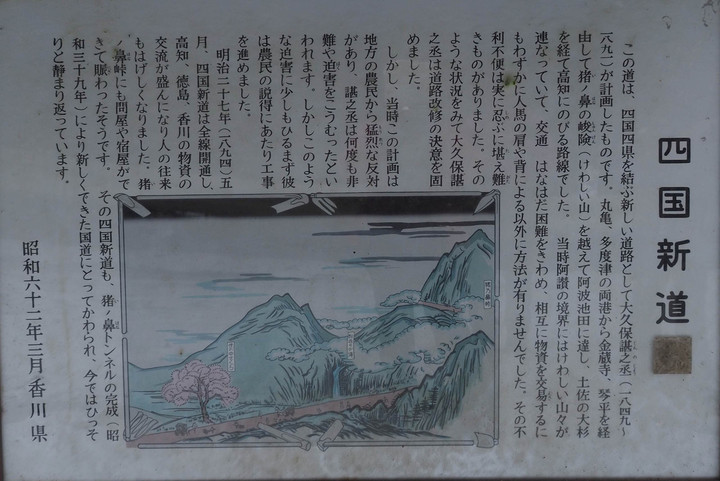 四国新道
この道は、四国四県を結ぶ新しい道路として大久保諶之丞(一八四九~
一八九一)が計画したものです。丸亀、多度津の両港から金蔵寺、琴平を経
由して猪ノ鼻の峻険(けわしい山)を越えて阿波池田に達し、土佐の大杉
を経て高知にのびる路線でした。 当時阿讃の境界にはけわしい山々が
連なっていて、交通 はなはだ困難をきわめ、相互に物資を交易するに
もわずかに人馬の肩や背による以外に方法が有りませんでした。その不
利不便は実に忍ぶに堪え難
きものがありました。その
ような状況をみて大久保諶
之丞は道路改修の決意を固
めました。
しかし、当時この計画は
地方の農民から猛烈な反対
があり、諶之丞は何度も非
難や迫害をこうむったとい
われます。しかしこのよう
な迫害に少しもひるまず彼
は農民の説得にあたり工事
を進めました。
明治二十七年(一八九四)五
月、四国新道は全線開通し、
高知、徳島、香川の物資の
交流が盛んになり人の往来
もはげしくなりました。猪
ノ鼻峠にも問屋や宿屋がで
きて賑わったそうです。 その四国新道も、猪ノ鼻トンネルの完成(昭
和三十九年)により新しくできた国道にとってかわられ、今ではひっそ
りと静まり返っています。
昭和六十二年三月香川県